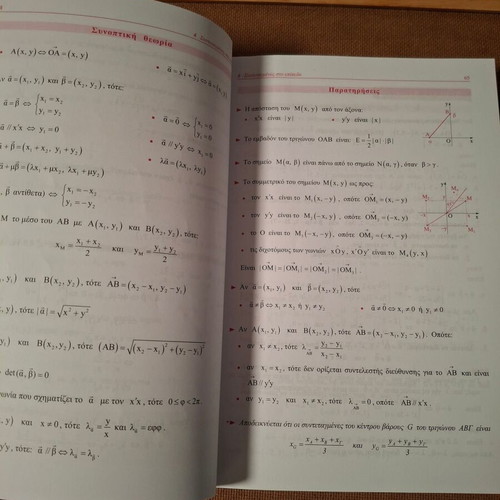 Συνοπτική θεωρία
• A(x, y) ⇔ OA⃗ = (x, y)
• α⃗ = xi⃗ + y
ν α⃗ = (x₁, y₁) και β⃗ = (x₂, y₂), τότε:
α⃗ = β⃗ ⇔ { x₁ = x₂ y₁ = y₂
• α⃗ = 0⃗ ⇔ { x₁ = 0 y₁ = 0
α⃗ // x'x ⇔ y₁ = 0
• α⃗ // y'y ⇔ x₁ = 0
α⃗ + β⃗ = (x₁ + x₂, y₁ + y₂)
• λα⃗ = (λx₁, λy₁)
α⃗ + μβ⃗ = (λx₁ + μx₂, λy₁ + μy₂)
β⃗ αντίθετα) ⇔ { x₁ = −x₂ y₁ = −y₂
Μ το μέσο του ΑΒ με A(x₁, y₁) και B(x₂, y₂), τότε:
x_M = (x₁ + x₂)/2 και y_M = (y₁ + y₂)/2
, y₁) και B(x₂, y₂), τότε AB⃗ = (x₂ − x₁, y₂ − y₁)
, y), τότε |α⃗| = √(x² + y²)
y₁) και B(x₂, y₂), τότε (AB) = √((x₂ − x₁)² + (y₂ − y₁)²)
det(α⃗, β⃗) = 0
ωνία που σχηματίζει το α⃗ με τον x'x, τότε 0 ≤ φ < 2π
, y) και x ≠ 0, τότε λ_α⃗ = y/x και λ_α⃗ = εφφ.
y'y, τότε: α⃗ // β⃗ ⇔ λ_α⃗ = λ_β⃗.
Παρατηρήσεις
► Η απόσταση του M(x, y) από τον άξονα:
• x'x είναι |y| • y'y είναι |x|
► Το εμβαδόν του τριγώνου ΟΑΒ είναι: E = 1/2 |α|·|β|
► Το σημείο M(α, β) είναι πάνω από το σημείο N(α, γ), όταν β > γ.
► Το συμμετρικό του σημείου M(x, y) ως προς:
• τον x'x είναι το M₁(x, −y), οπότε OM₁⃗ = (x, −y)
• τον y'y είναι το M₂(−x, y), οπότε OM₂⃗ = (−x, y)
• το O είναι το M₃(−x, −y), οπότε OM₃⃗ = (−x, −y)
• τις διχοτόμους των γωνιών xÔy, x'Ôy' είναι το M₄(y, x)
► Αν α⃗ = (x₁, y₁) και β⃗ = (x₂, y₂), τότε
• α⃗ ≠ β⃗ ⇔ x₁ ≠ x₂ ή y₁ ≠ y₂ • α⃗ ≠ 0⃗ ⇔ x₁ ≠ 0 ή y₁ ≠ 0
► Αν A(x₁, y₁) και B(x₂, y₂), τότε AB⃗ = (x₂ − x₁, y₂ − y₁). Οπότε:
• αν x₁ ≠ x₂, τότε λ_AB⃗ = (y₂ − y₁)/(x₂ − x₁)
• αν x₁ = x₂, τότε δεν ορίζεται συντελεστής διεύθυνσης για το AB⃗ και είναι
AB⃗ // y'y
• αν y₁ = y₂ και x₁ ≠ x₂, τότε λ_AB⃗ = 0, οπότε AB⃗ // x'x.
► Αποδεικνύεται ότι οι συντεταγμένες του κέντρου βάρους G του τριγώνου ΑΒΓ είναι
x_G = (x_A + x_B + x_Γ)/3 και y_G = (y_A + y_B + y_Γ)/3